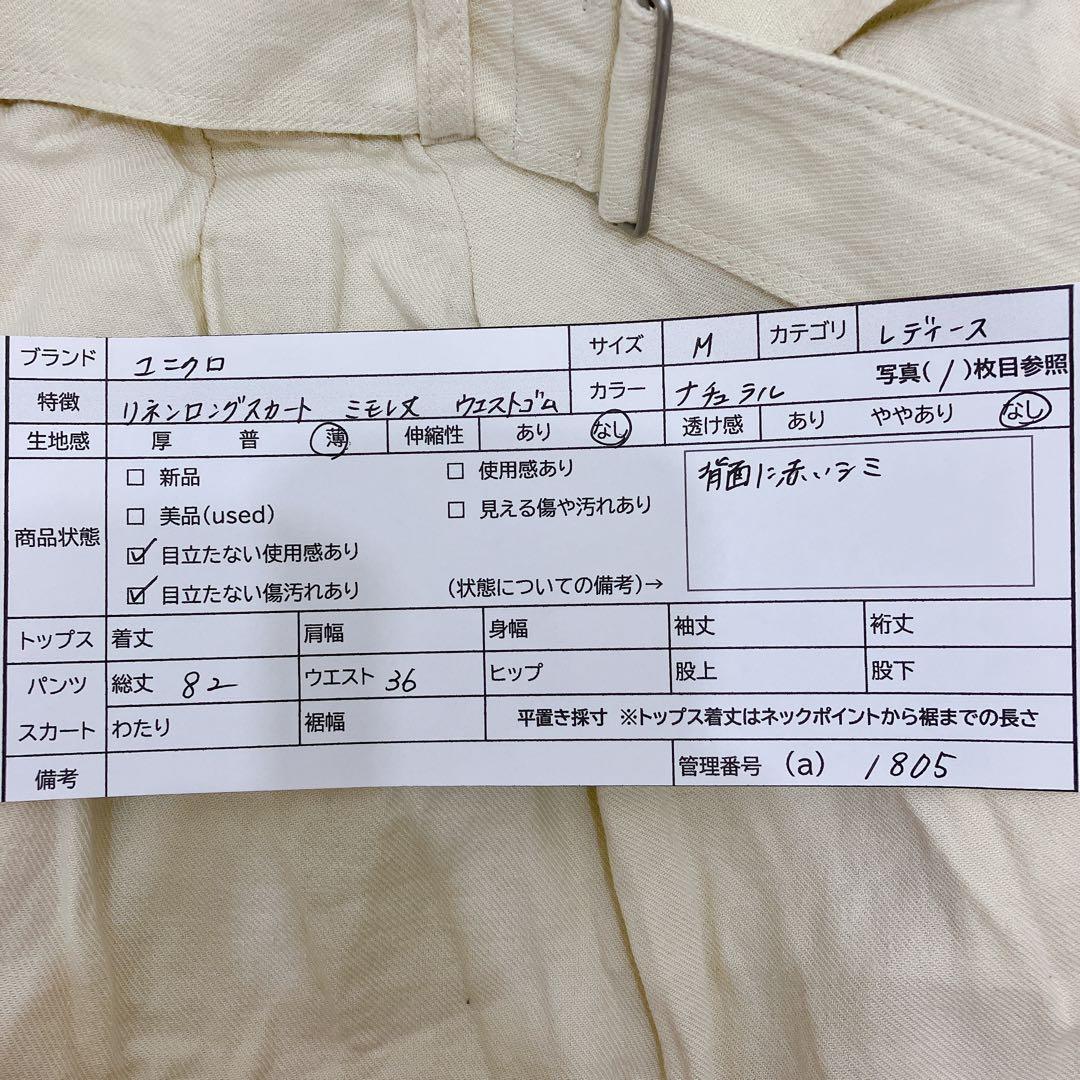 ブランド ユニクロ サイズ M カテゴリ レディース
特徴 リネンロングスカート ミモレ丈 ウエストゴム カラー ナチュラル 写真(1)枚目参照
生地感 厚 普 薄 伸縮性 あり なし 透け感 あり ややあり なし
商品状態 □ 新品 □ 使用感あり 背面に赤いシミ
□ 美品(used) □ 見える傷や汚れあり
☑ 目立たない使用感あり
☑ 目立たない傷汚れあり (状態についての備考)→
トップス 着丈 肩幅 身幅 袖丈 裄丈
パンツ 総丈 82 ウエスト 36 ヒップ 股上 股下
スカート わたり 裾幅 平置き採寸 ※トップス着丈はネックポイントから裾までの長さ
備考 管理番号 (a) 1805